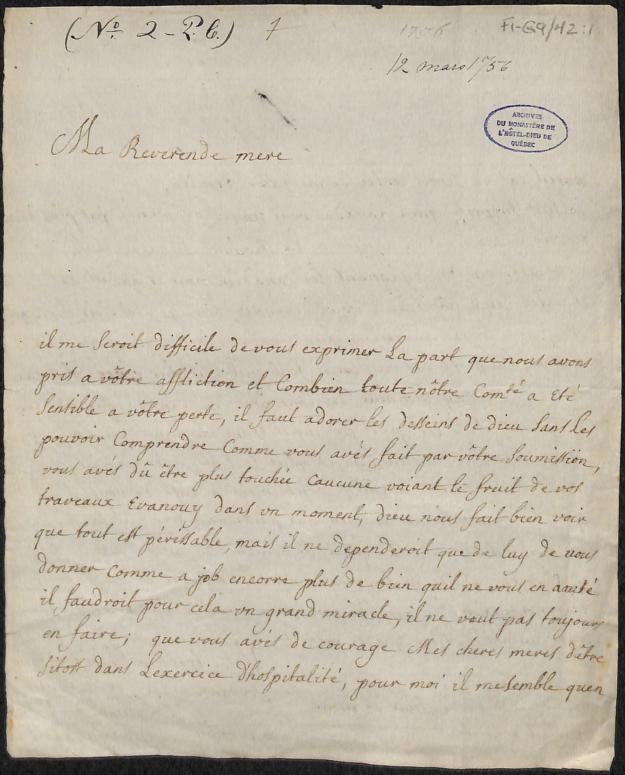 (No. 2 - P. C.) 7
1756
F1-G9/42:1
12 mars 1756
ARCHIVES
DU MONASTÈRE DE
L'HÔTEL-DIEU DE
QUÉBEC
Ma Reverende mere
il me seroit difficile de vous exprimer La part que nous avons
pris a vôtre affliction et Combien toute nôtre Comté a Eté
Sensible a vôtre perte, il faut adorer les desseins de dieu Sans Les
pouvoir Comprendre Comme vous avés fait par vôtre Soumission,
vous avés dû être plus touchée voiant le fruit de vos
traveaux Evanouy dans vn moment, dieu nous fait bien voir
que tout est périssable, mais il ne dependeroit que de luy de vous
donner Comme a job encorre plus de bien quil ne vous en a auté
il faudroit pour cela vn grand miracle, il ne veut pas toujours
en faire; que vous avés de courage Mes cheres meres dêtre
sitost dans Lexercice d'hospitalité, pour moi il me semble quen